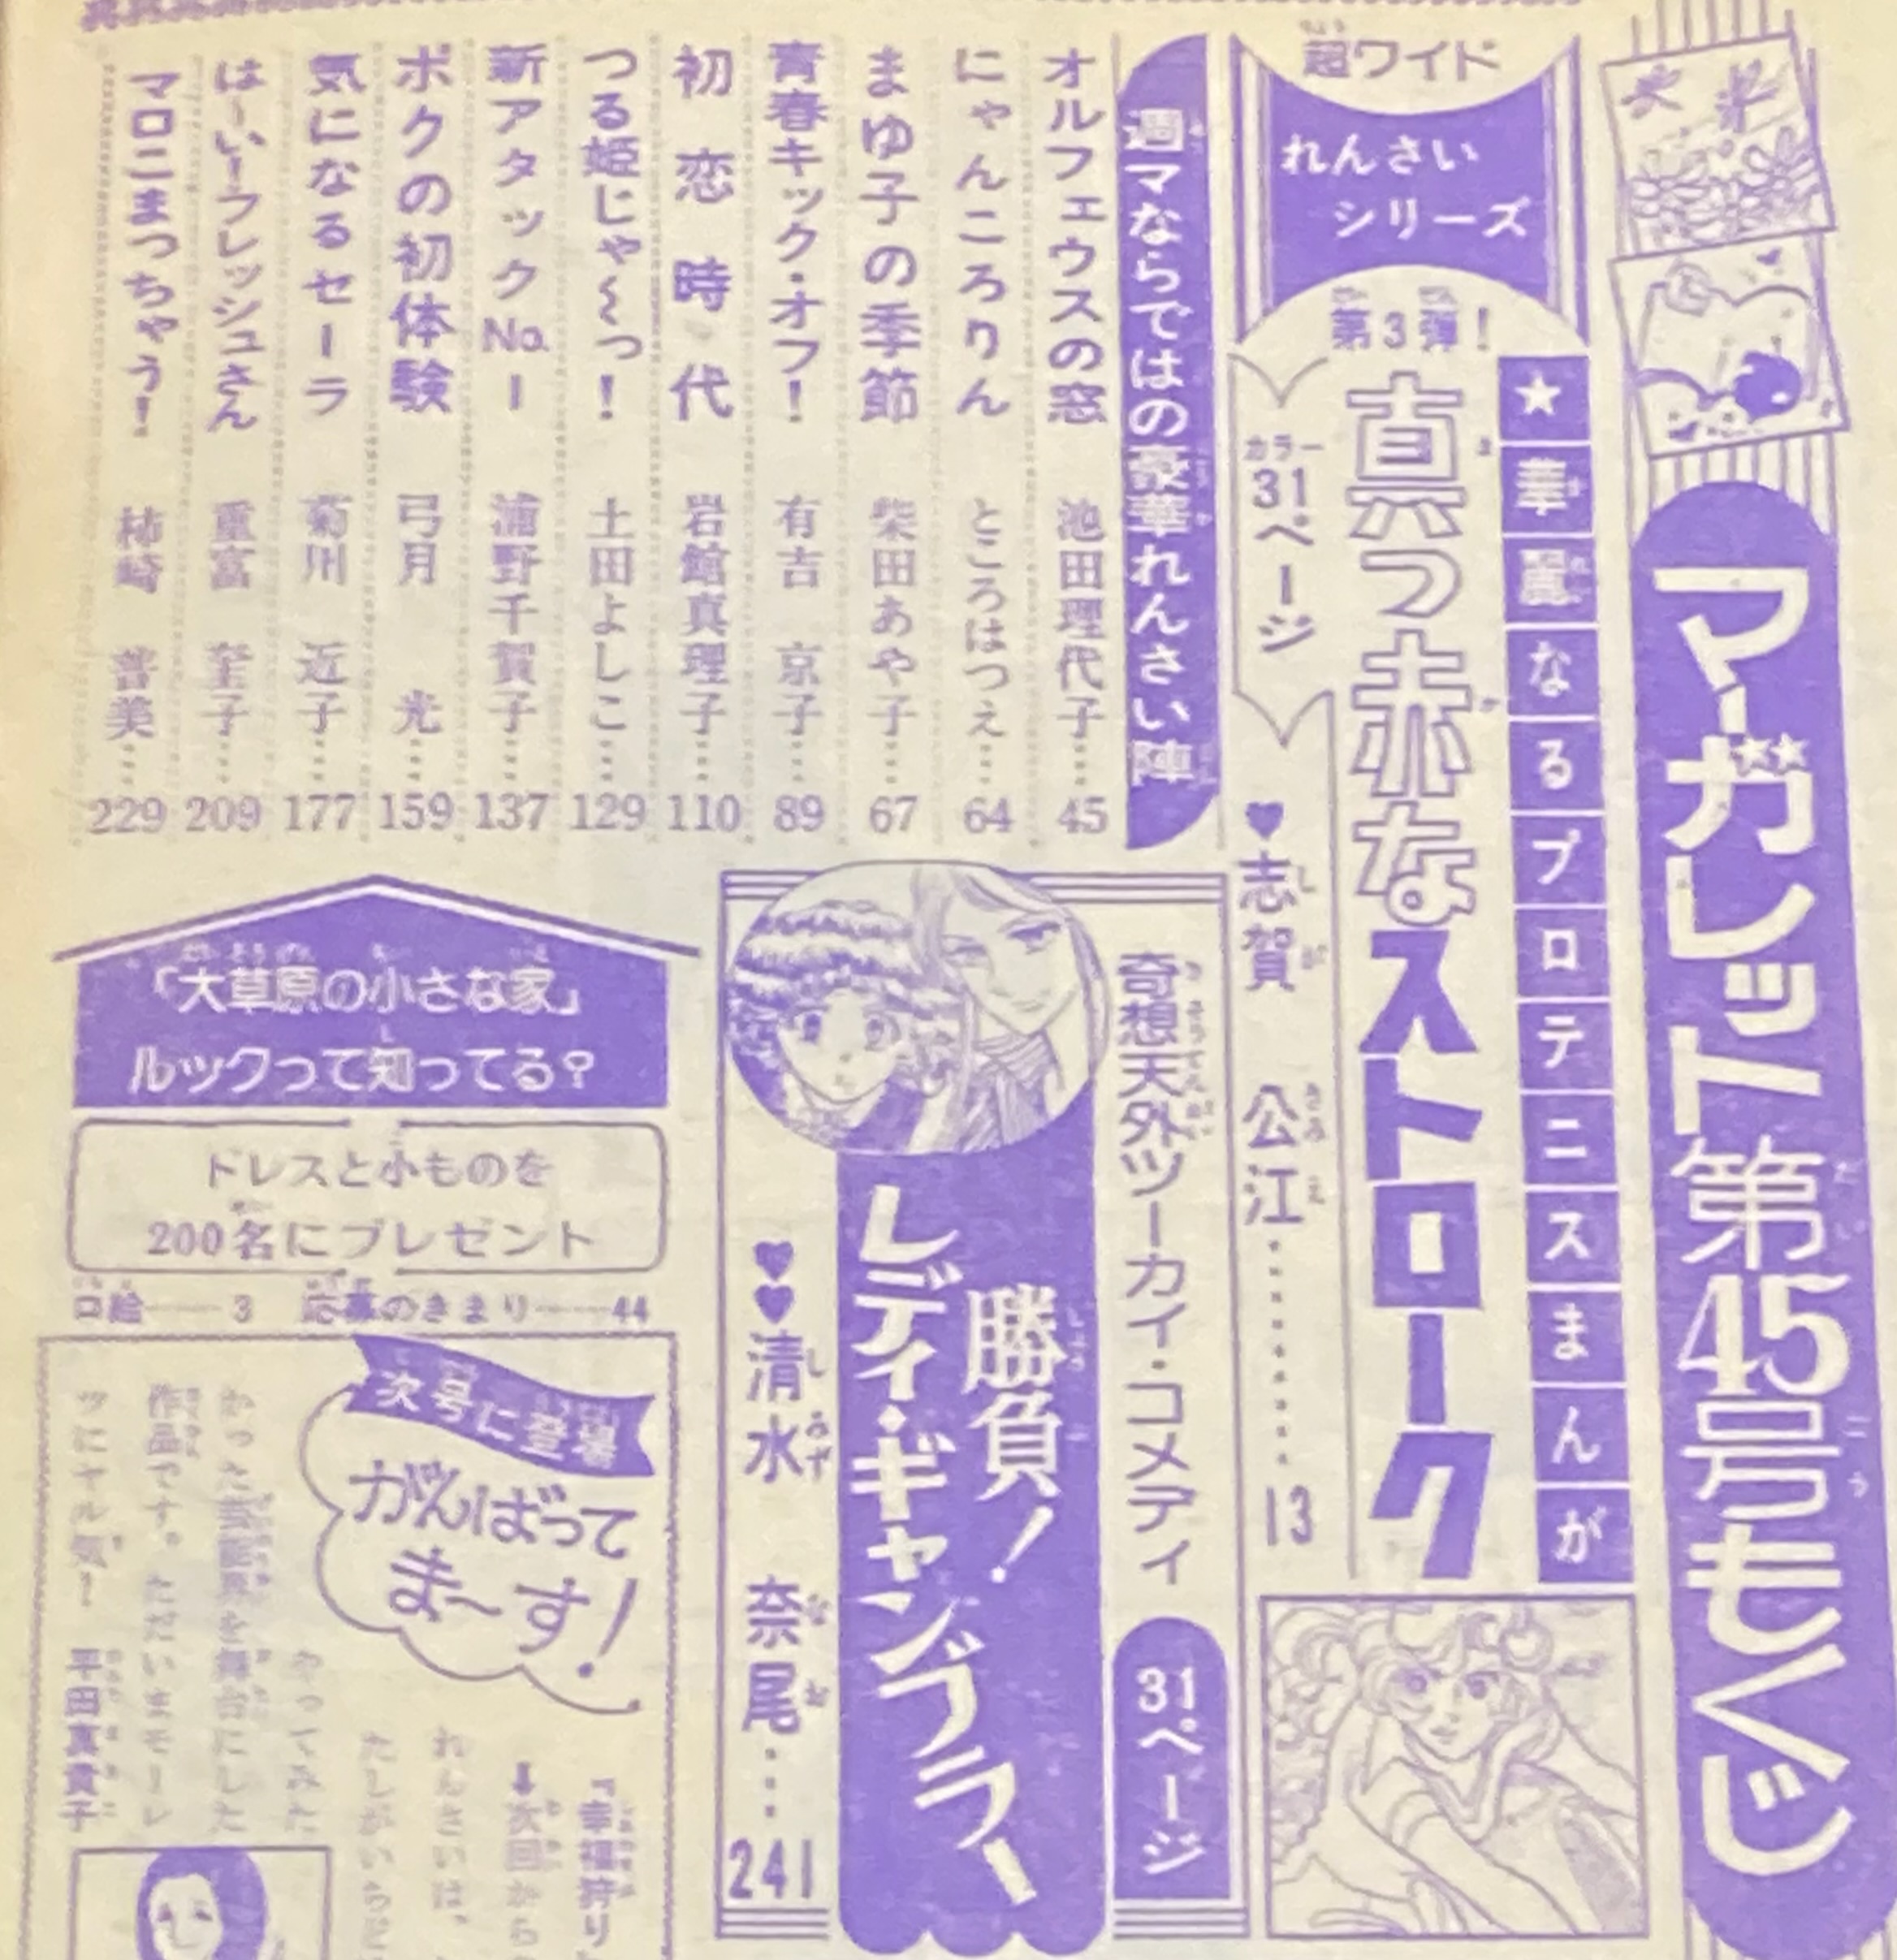 マーガレット第45号もくじ
★華麗なるプロテニスまんが
超ワイド
れんさい
シリーズ
第3弾!
真っ赤なストローク
カラー
31ページ
♥志賀 公江…………13
週マならではの豪華れんさい陣
オルフェウスの窓 池田理代子…45
にゃんころりん ところはつえ…64
まゆ子の季節 柴田あや子…67
青春キック・オフ! 有吉 京子…89
初恋時代 岩館真理子…110
つる姫じゃ〜っ! 土田よしこ…129
新アタックNo.1 浦野千賀子…137
ボクの初体験 弓月 光…159
気になるセーラ 菊川 近子…177
はーい!フレッシュさん 重富 奎子…209
マロニまっちゃう! 柿崎 普美…229
奇想天外ツーカイ・コメディ
31ページ
勝負!
レディ・ギャンブラー
♥♥清水 奈尾…241
「大草原の小さな家」
ルックって知ってる?
ドレスと小ものを
200名にプレゼント
口絵——3 応募のきまり——44
次号に登場
がんばって
ま〜す!
『幸福狩り
⬇次回から
れんさいは、
やってみた
かった
を舞台にした
作品です。ただいまモーレ
ツにヤル気!
平田真貴子